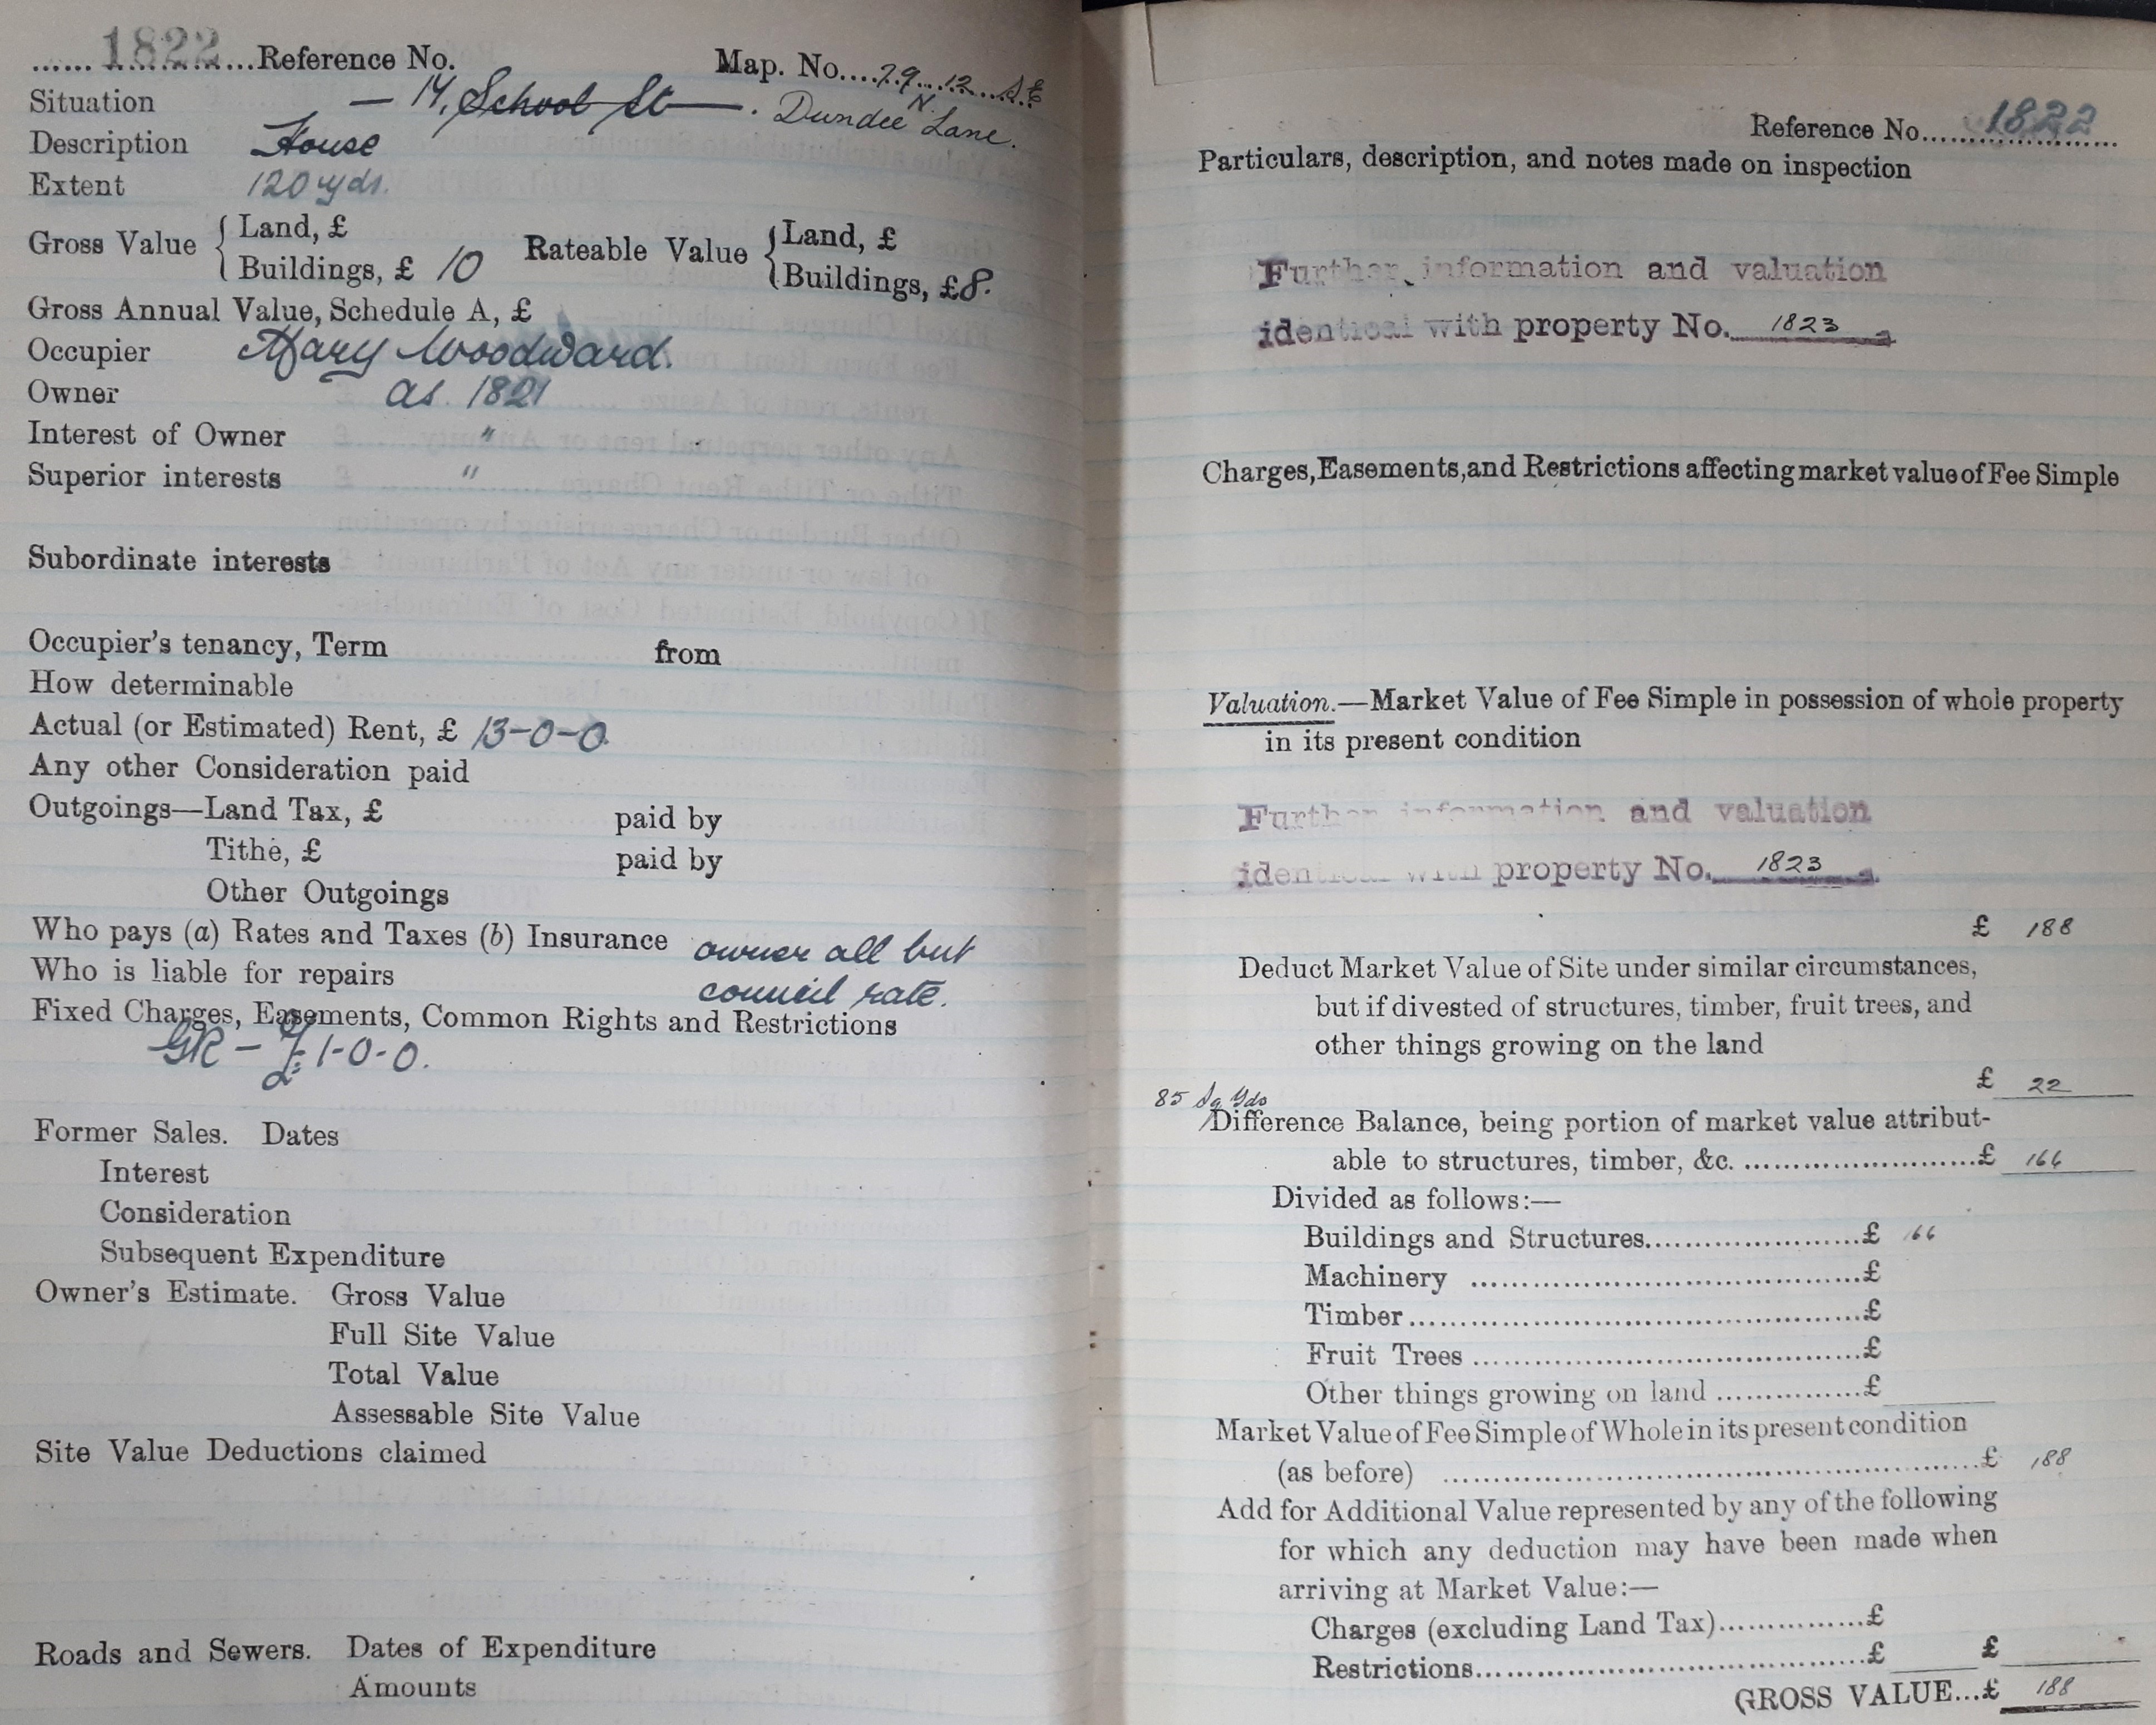 ...... 1822 ...Reference No. Map. No....79...12...S.E
Situation — 14, School St —. Dundee N. Lane.
Description House
Extent 120 yds.
Gross Value { Land, £ Rateable Value { Land, £
Buildings, £ 10 Buildings, £8.
Gross Annual Value, Schedule A, £
Occupier Mary Woodward.
Owner as. 1821
Interest of Owner "
Superior interests "
Subordinate interests
Occupier's tenancy, Term from
How determinable
Actual (or Estimated) Rent, £ 13-0-0.
Any other Consideration paid
Outgoings—Land Tax, £ paid by
Tithe, £ paid by
Other Outgoings
Who pays (a) Rates and Taxes (b) Insurance owner all but
Who is liable for repairs council rate.
Fixed Charges, Easements, Common Rights and Restrictions
GR - £1-0-0.
Former Sales. Dates
Interest
Consideration
Subsequent Expenditure
Owner's Estimate. Gross Value
Full Site Value
Total Value
Assessable Site Value
Site Value Deductions claimed
Roads and Sewers. Dates of Expenditure
Amounts
Reference No..... 1822
Particulars, description, and notes made on inspection
Further information and valuation
identical with property No. 1823
Charges, Easements, and Restrictions affecting market value of Fee Simple
Valuation.—Market Value of Fee Simple in possession of whole property
in its present condition
Further information and valuation
identical with property No. 1823
£ 188
Deduct Market Value of Site under similar circumstances,
but if divested of structures, timber, fruit trees, and
other things growing on the land
£ 22
85 Sq Yds
Difference Balance, being portion of market value attribut-
able to structures, timber, &c. ..............................£ 166
Divided as follows:—
Buildings and Structures........................£ 166
Machinery ..........................................£
Timber................................................£
Fruit Trees ..........................................£
Other things growing on land ................£
Market Value of Fee Simple of Whole in its present condition
(as before) ............................................................£ 188
Add for Additional Value represented by any of the following
for which any deduction may have been made when
arriving at Market Value:—
Charges (excluding Land Tax)...............£
Restrictions..........................................£ £
GROSS VALUE...£ 188